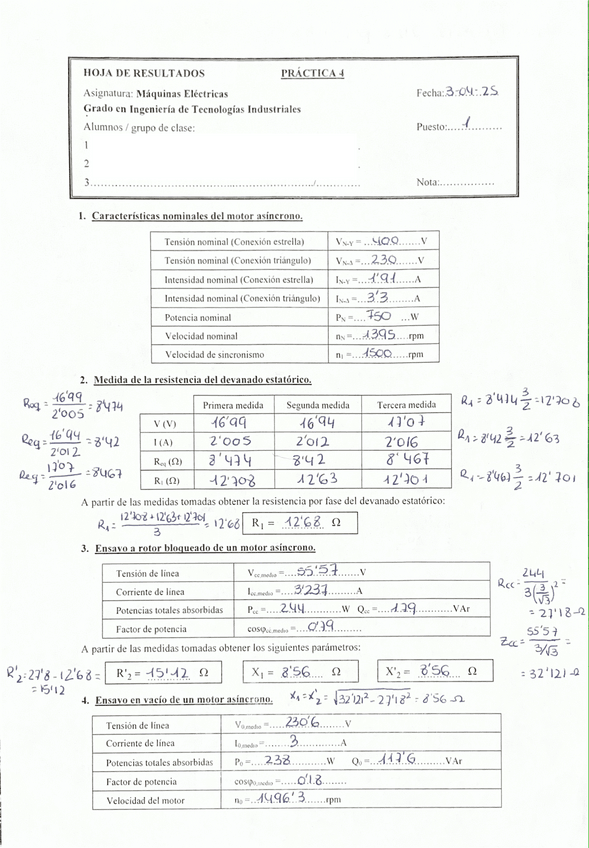 HOJA DE RESULTADOS PRÁCTICA 4
Asignatura: Máquinas Eléctricas Fecha: 3-04-25
Grado en Ingeniería de Tecnologías Industriales
Alumnos / grupo de clase: Puesto:.....1.....
1
2
3...../..... Nota:.....
1. Características nominales del motor asíncrono.
Tensión nominal (Conexión estrella) V_N-Y = ...400...V
Tensión nominal (Conexión triángulo) V_N-Δ = ...230...V
Intensidad nominal (Conexión estrella) I_N-Y = ...1'91...A
Intensidad nominal (Conexión triángulo) I_N-Δ = ...3'3...A
Potencia nominal P_N = ...750...W
Velocidad nominal n_N = ...1395...rpm
Velocidad de sincronismo n_1 = ...1500...rpm
2. Medida de la resistencia del devanado estatórico.
Req = 16'99 / 2'005 = 8'474
Req = 16'94 / 2'012 = 8'42
Req = 17'07 / 2'016 = 8'467
Primera medida Segunda medida Tercera medida
V (V) 16'99 16'94 17'07
I (A) 2'005 2'012 2'016
R_eq (Ω) 8'474 8'42 8'467
R_1 (Ω) 12'708 12'63 12'701
R1 = 8'474 3/2 = 12'708
R1 = 8'42 3/2 = 12'63
R1 = 8'467 3/2 = 12'701
A partir de las medidas tomadas obtener la resistencia por fase del devanado estatórico:
R1 = 12'708 + 12'63 + 12'701 / 3 = 12'68 R_1 = 12'68 Ω
3. Ensayo a rotor bloqueado de un motor asíncrono.
Tensión de línea V_cc,medio = ...55'57...V
Corriente de línea I_cc,medio = ...3'237...A
Potencias totales absorbidas P_cc = ...244...W Q_cc = ...179...VAr
Factor de potencia cosφ_cc,medio = ...0'79...
Rcc = 244 / 3(3/√3)² =
= 27'18 Ω
Zcc = 55'57 / 3/√3 =
= 32'121 Ω
A partir de las medidas tomadas obtener los siguientes parámetros:
R'2 = 27'8 - 12'68 =
= 15'12
R'_2 = 15'12 Ω X_1 = 8'56 Ω X'_2 = 8'56 Ω
4. Ensayo en vacío de un motor asíncrono. X1 = X'2 = √32'121² - 27'18² = 8'56 Ω
Tensión de línea V_0,medio = ...230'6...V
Corriente de línea I_0,medio = ...3...A
Potencias totales absorbidas P_0 = ...238...W Q_0 = ...117'6...VAr
Factor de potencia cosφ_0,medio = ...0'18...
Velocidad del motor n_0 = ...1496'3...rpm